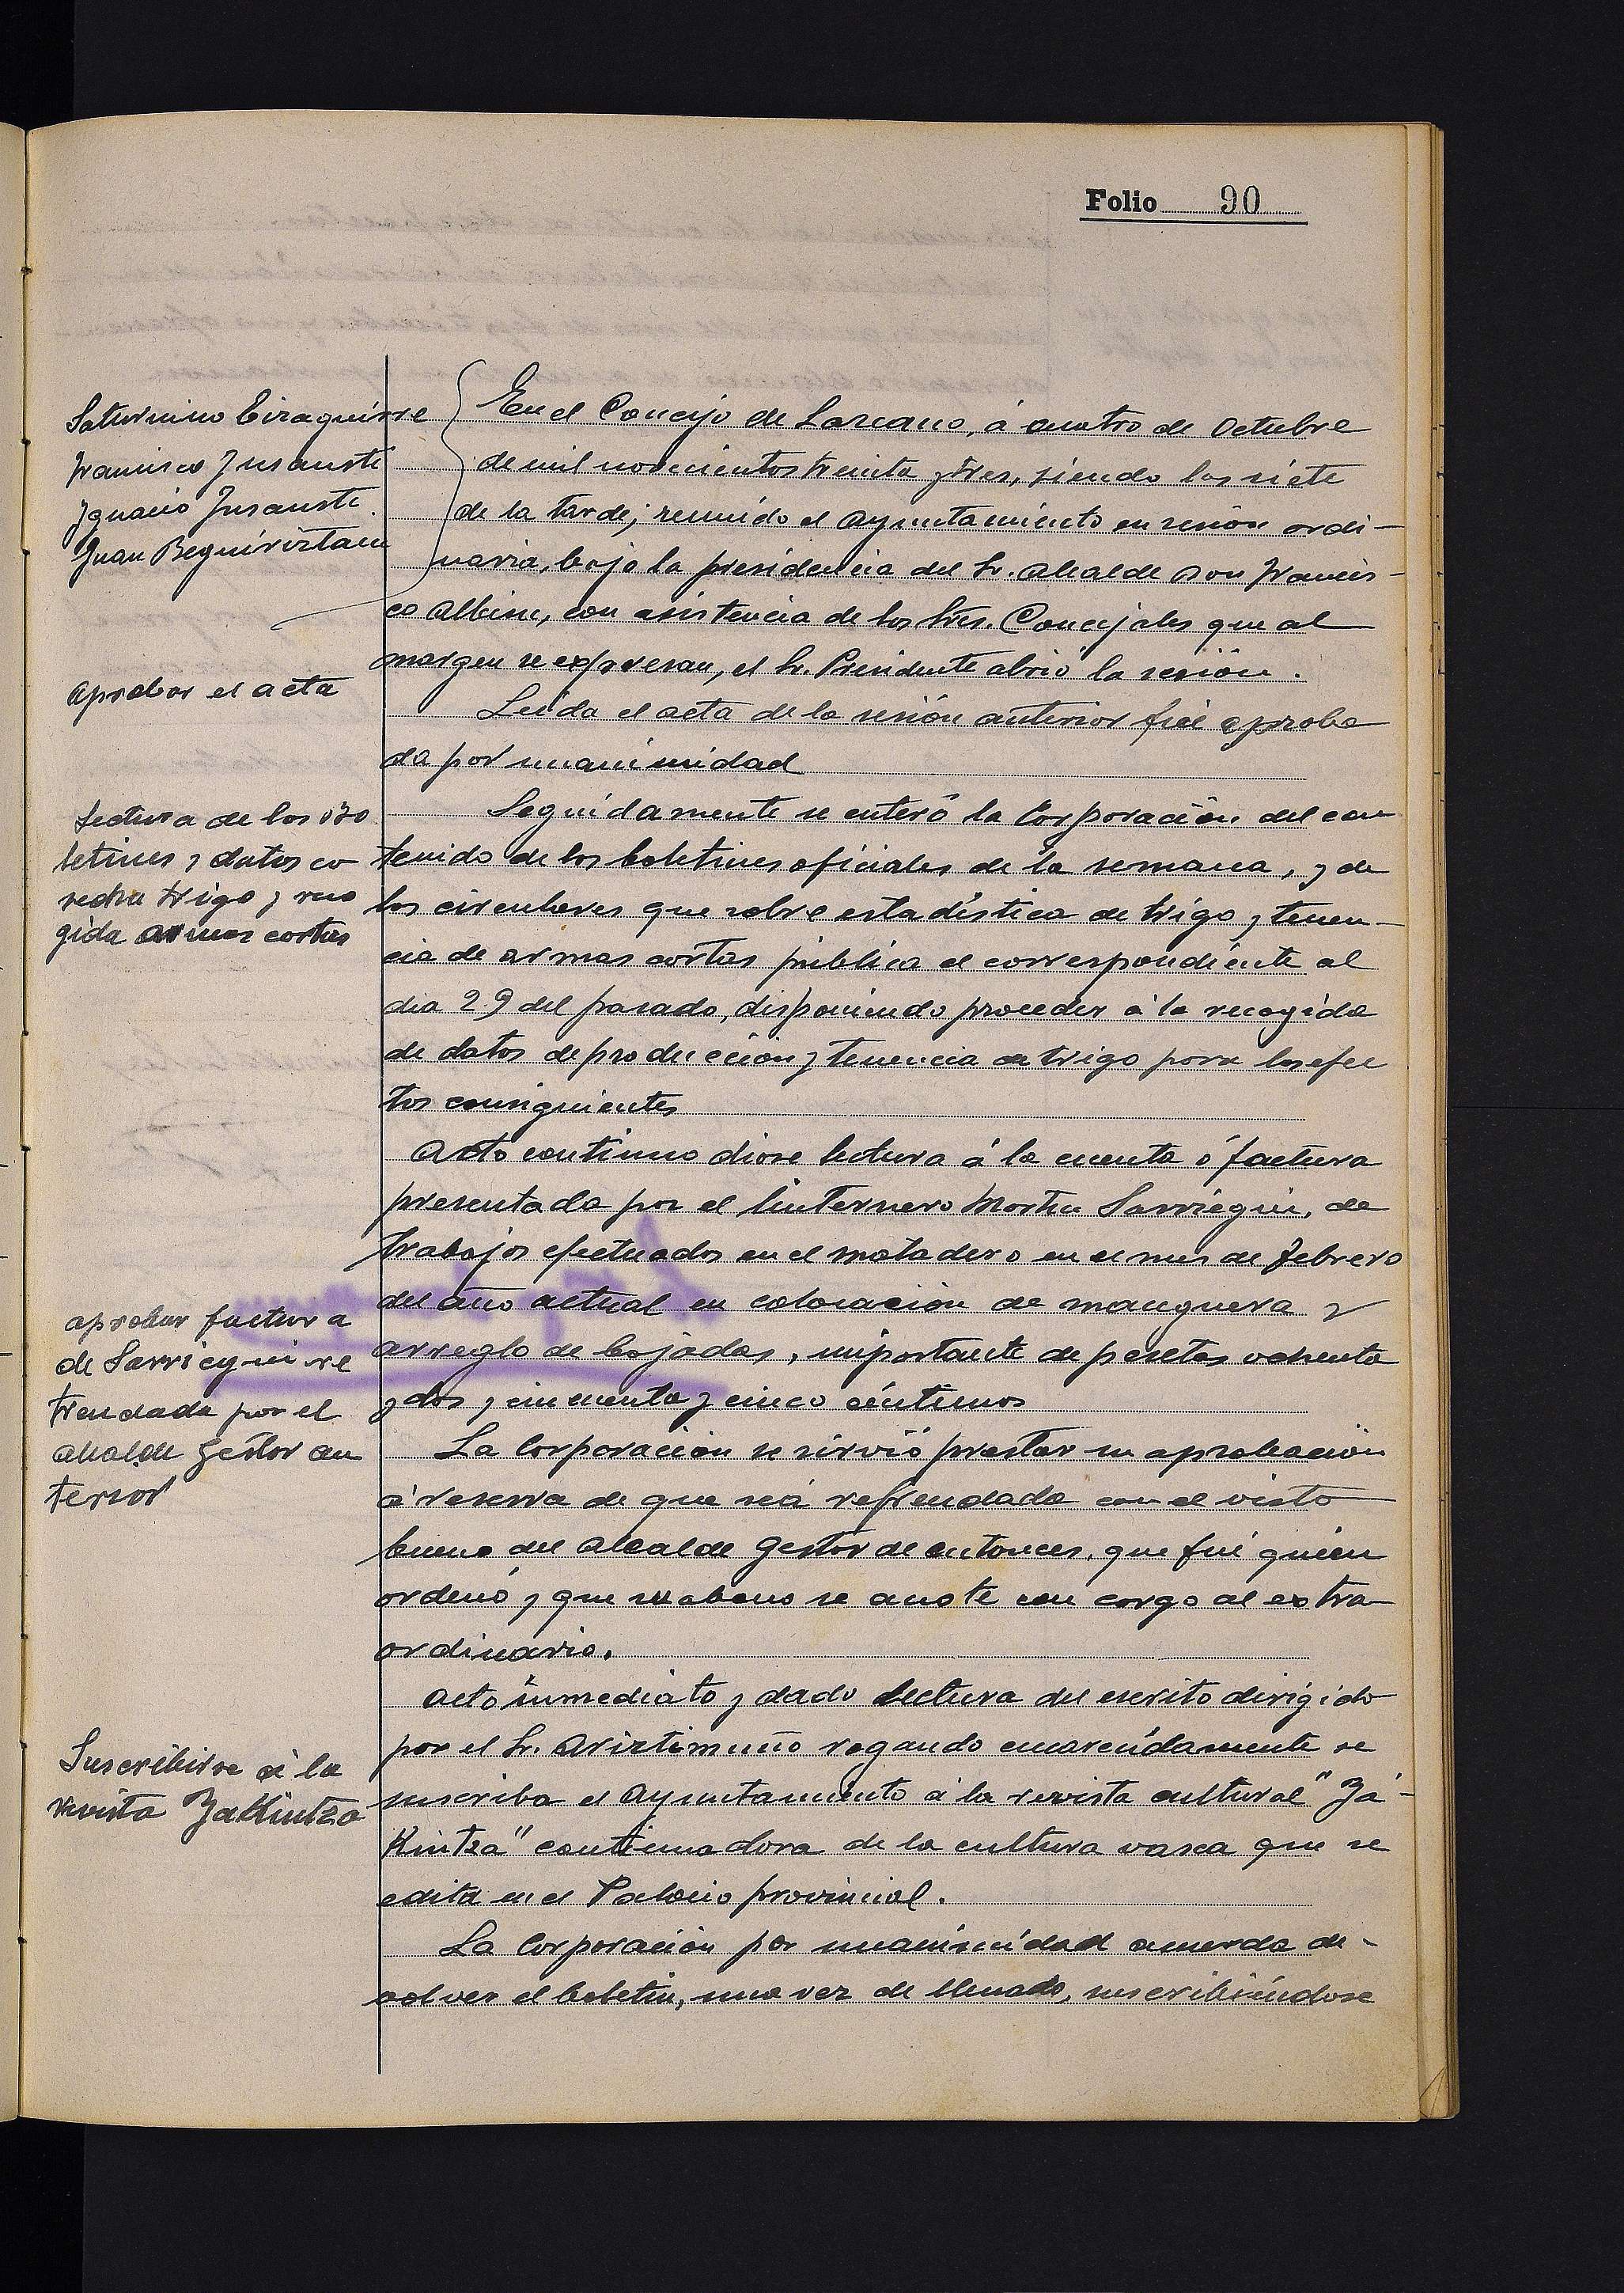 Folio 90
Saturnino Eizaguirre
Francisco Insausti
Ygnacio Insausti.
Juan Beguiristain
En el Concejo de Lazcano, á cuatro de Octubre
de mil novecientos treinta y tres, siendo las siete
de la tarde; reunido el Ayuntamiento en sesión ordi-
naria, bajo la presidencia del Sr. Alcalde Don Francis-
co Albisu, con asistencia de los Sres. Concejales que al
margen se expresan, el Sr. Presidente abrió la sesión.
Aprobar el acta
Leida el acta de la sesión anterior fué aproba
da por unanimidad
Lectura de los bo
letines y datos co
secha trigo y reco
gida armas cortas
Seguidamente se enteró la Corporación del con
tenido de los boletines oficiales de la semana, y de
las circulares que sobre estadística de trigo y tenen-
cia de armas cortas publica el correspondiente al
dia 29 del pasado, disponiendo proceder á la recogida
de datos de producción y tenencia de trigo para los efec
tos consiguientes
Acto continuo diose lectura á la cuenta ó factura
presentada por el linternero Martin Sarriegui, de
trabajos efectuados en el matadero en el mes de Febrero
del año actual en colocación de manguera y
arreglo de bajadas, importante de pesetas ochenta
y dos y cincuenta y cinco céntimos
aprobar factura
de Sarriegui re
frendada por el
alcalde gestor an
terior
La Corporación se sirvió prestar su aprobación
á reserva de que sea refrendada con el visto
bueno del Alcalde Gestor de entonces, que fué quién
ordenó y que su abono se anote con cargo al extra
ordinario.
Suscribirse á la
revista Yakintza
Acto inmediato y dado lectura del escrito dirigido
por el Sr. Ariztimuño rogando encarecidamente se
suscriba el Ayuntamiento á la revista cultural "Ya-
kintza" continuadora de la cultura vasca que se
edita en el Palacio provincial.
La Corporación por unanimidad acuerda de-
volver el boletin, una vez de llenado, suscribiéndose